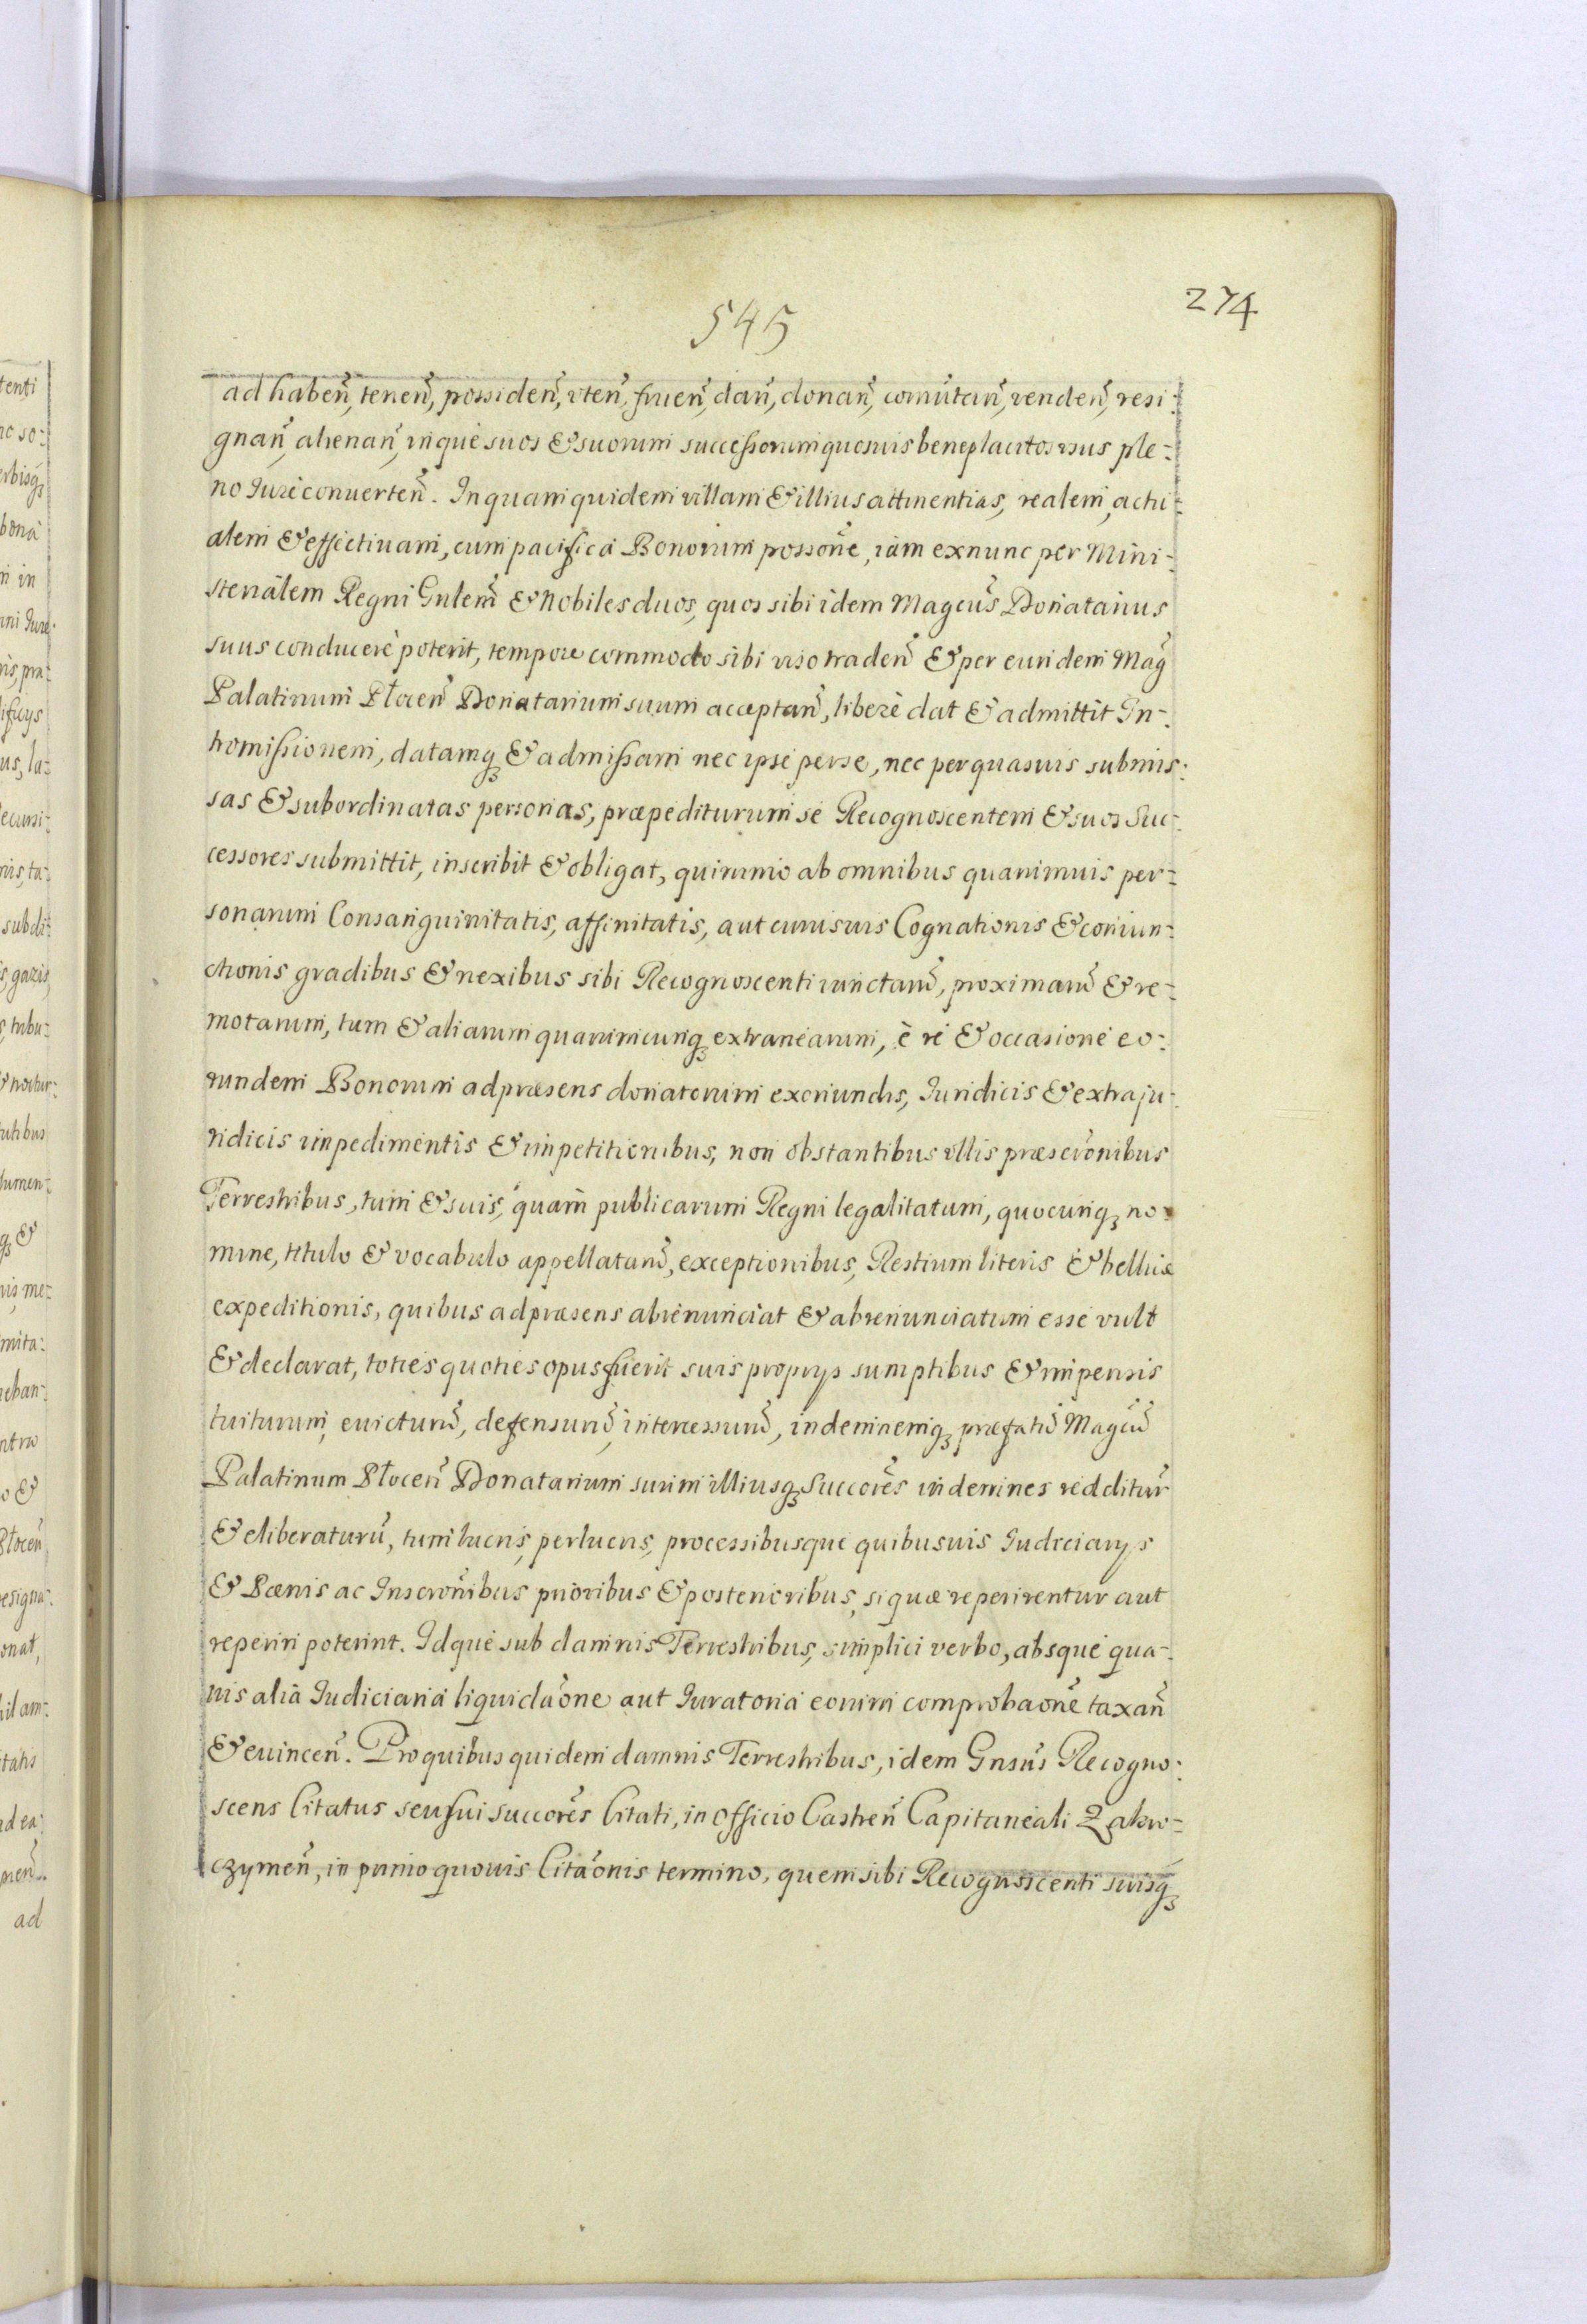 274
545
ad habeñ, teneñ, possideñ, vteñ, frueñ, dañ, donañ, comūtañ, vendeñ, resi-
gnañ, alienañ, inque suos & suorum successorum quosuis beneplacitos vsus ple-
no Iure conuerteñ. In quam quidem villam & illius attinentias, realem, actu-
alem & effectiuam, cum pacifica Bonorum possoñe, iam exnunc per Mini-
sterialem Regni Gnlem̃ & Nobiles duos, quos sibi idem Magcus̃ Donatarius
suus conducere poterit, tempore commodo sibi viso tradeñ & per eundem Mag̃
Palatinum Płoceñ Donatarium suum acceptañ, libere dat & admittit In-
tromissionem, datamq3 & admissam nec ipse per se, nec per quasuis submis-
sas & subordinatas personas, præpediturum se Recognoscentem & suos Suc-
cessores submittit, inscribit & obligat, quinimo ab omnibus quarumuis per-
sonarum Consanguinitatis, affinitatis, aut cuiusuis Cognationis & coniun-
ctionis gradibus & nexibus sibi Recognoscenti iunctarũ, proximarũ & re-
motarum, tum & aliarum quarumcunq3 extranearum, è re & occasione eo-
rundem Bonorum ad præsens donatorum exoriundis, Iuridicis & extraju-
ridicis impedimentis & impetitionibus, non obstantibus vllis præscrõnibus
Terrestribus, tum & suis, quam publicarum Regni legalitatum, quocunq3 no-
mine, titulo & vocabulo appellatarũ, exceptionibus, Restium literis & bellicæ
expeditionis, quibus ad præsens abrenunciat & abrenunciatum esse vult
& declarat, toties quoties opus fuerit suis proprys sumptibus & impensis
tuiturum, euicturũ, defensurũ, intercessurũ, indemnemq3 præfatũ Magcũ
Palatinum Płoceñ Donatarium suum illiusq3 Succorẽs indemnes redditur̃
& eliberaturũ, tum lucris, perlucris, processibusque quibusuis Iudiciarys
& Pœnis ac Inscrõnibus prioribus & posterioribus, si quæ reperirentur aut
reperiri poterint. Idque sub damnis Terrestribus, simplici verbo, absque qua-
uis alia Iudiciaria liquidaõne aut Iuratoria eorum comprobaoñe taxañ
& euinceñ. Pro quibus quidem damnis Terrestribus, idem Gnsus̃ Recogno-
scens Citatus seu sui succorẽs Citati, in Officio Castreñ Capitaneali Zakro-
czymeñ, in primo quouis Citaõnis termino, quem sibi Recognoscenti suisq3